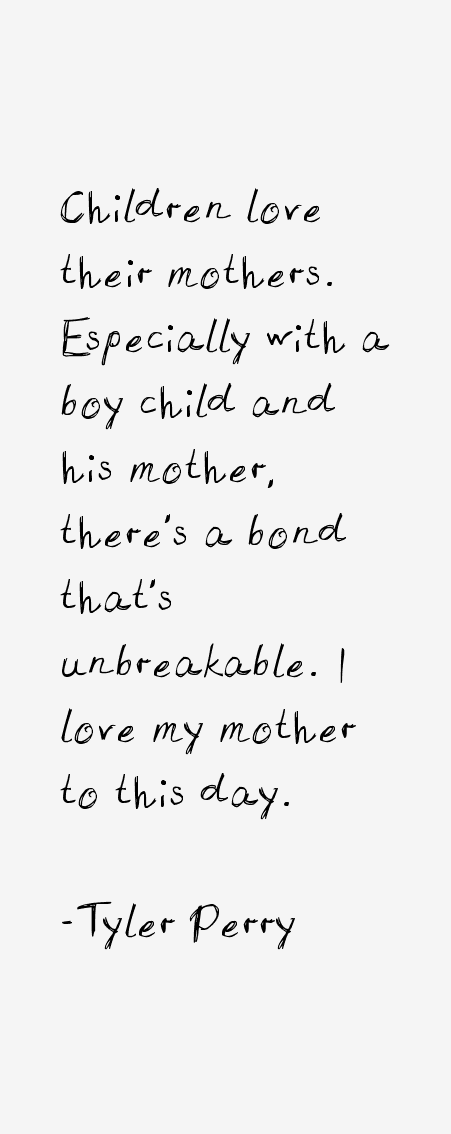 Children love
their mothers.
Especially with a
boy child and
his mother,
there's a bond
that's
unbreakable. I
love my mother
to this day.
-Tyler Perry